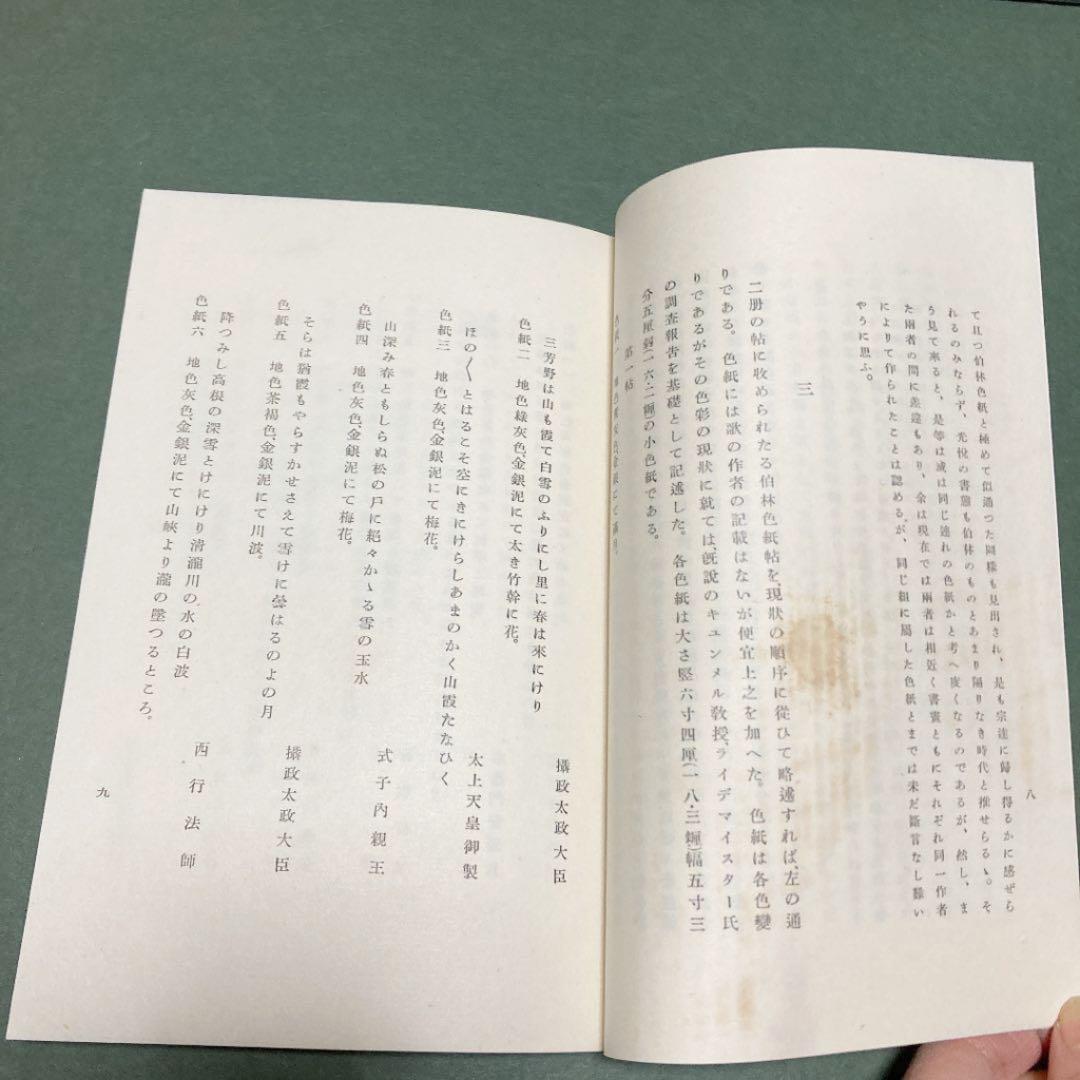 て且つ伯林色紙と極めて似通つた圖様も見出され、是も宗達に歸し得るかに感ぜら
れるのみならず、光悦の書態も伯林のものとあまり隔りなき時代と推せらるゝ。そ
う見て來ると、是等は或は同じ連れの色紙かと考へ度くなるのであるが、然し、ま
た兩者の間に差違もあり、余は現在では兩者は相近く書畫ともにそれぞれ同一作者
によりて作られたことは認めるが、同じ組に屬した色紙とまでは未だ斷言なし難い
やうに思ふ。
三
二册の帖に收められたる伯林色紙帖を、現狀の順序に從ひて略述すれば、左の通
りである。色紙には歌の作者の記載はないが便宜上之を加へた。色紙は各色變
りであるがその色彩の現狀に就ては、旣說のキュンメル敎授、ライデマイスター氏
の調査報告を基礎として記述した。各色紙は大さ竪六寸四厘(一八・三糎)幅五寸三
分五厘弱(一六・二糎)の小色紙である。
第一帖
八
三芳野は山も霞て白雪のふりにし里に春は來にけり 攝政太政大臣
色紙二 地色綠灰色、金銀泥にて太き竹幹に花。
ほの〱とはるこそ空にきにけらしあまのかく山霞たなひく 太上天皇御製
色紙三 地色灰色、金銀泥にて梅花。
山深み春ともしらぬ松の戸に絕々かゝる雪の玉水 式子內親王
色紙四 地色灰色、金銀泥にて梅花。
そらは猶霞もやらすかせさえて雪けに曇はるのよの月 攝政太政大臣
色紙五 地色茶褐色、金銀泥にて川波。
降つみし高根の深雪とけにけり淸瀧川の水の白波 西行法師
色紙六 地色灰色、金銀泥にて山峽より瀧の墜つるところ。
九